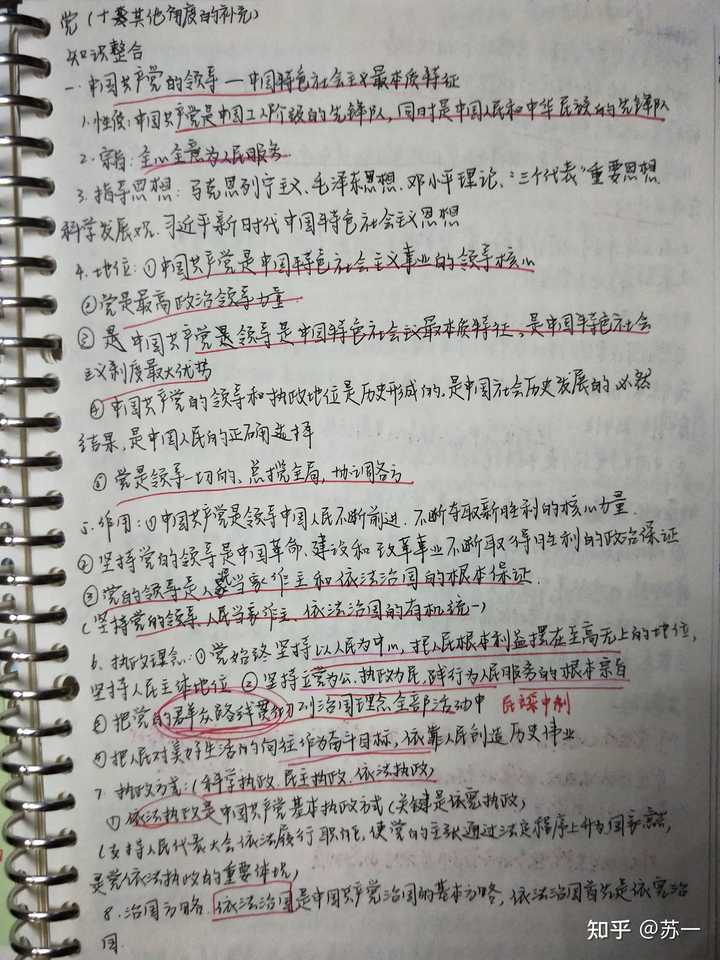 党（十幕其他角度的补充）
知识整合
一.中国共产党的领导—中国特色社会主义最本质特征
1.性质:中国共产党是中国工人阶级的先锋队，同时是中国人民和中华民族的先锋队
2.宗旨:全心全意为人民服务
3.指导思想:马克思列宁主义、毛泽东思想、邓小平理论、“三个代表”重要思想
科学发展观、习近平新时代中国特色社会主义思想
4.地位:①中国共产党是中国特色社会主义事业的领导核心
②党是最高政治领导力量
③是中国共产党是领导是中国特色社会主义最本质特征，是中国特色社会
主义制度最大优势
④中国共产党的领导和执政地位是历史形成的，是中国社会历史发展的必然
结果，是中国人民的正确选择
⑤党是领导一切的，总揽全局，协调各方
5.作用:①中国共产党是领导中国人民不断前进.不断夺取新胜利的核心力量.
②坚持党的领导是中国革命、建设和改革事业不断取得胜利的政治保证
③党的领导是人民当家作主和依法治国的根本保证.
（坚持党的领导、人民当家作主、依法治国的有机统一）
6.执政理念:①党始终坚持以人民为中心，把人民根本利益摆在至高无上的地位，
坚持人民主体地位 ②坚持立党为公、执政为民，践行为人民服务的根本宗旨
③把党的群众路线贯彻到治国理念全部活动中 民主集中制
④把人民对美好生活的向往作为奋斗目标，依靠人民创造历史伟业
7.执政方式:（科学执政、民主执政、依法执政）
①依法执政是中国共产党基本执政方式（关键是依宪执政）
（支持人民代表大会依法履行职能，使党的主张通过法定程序上升为国家意志，
是党依法执政的重要体现）
8.治国方略.依法治国是中国共产党治国的基本方略，依法治国首先是依宪治
国.
知乎 @苏一